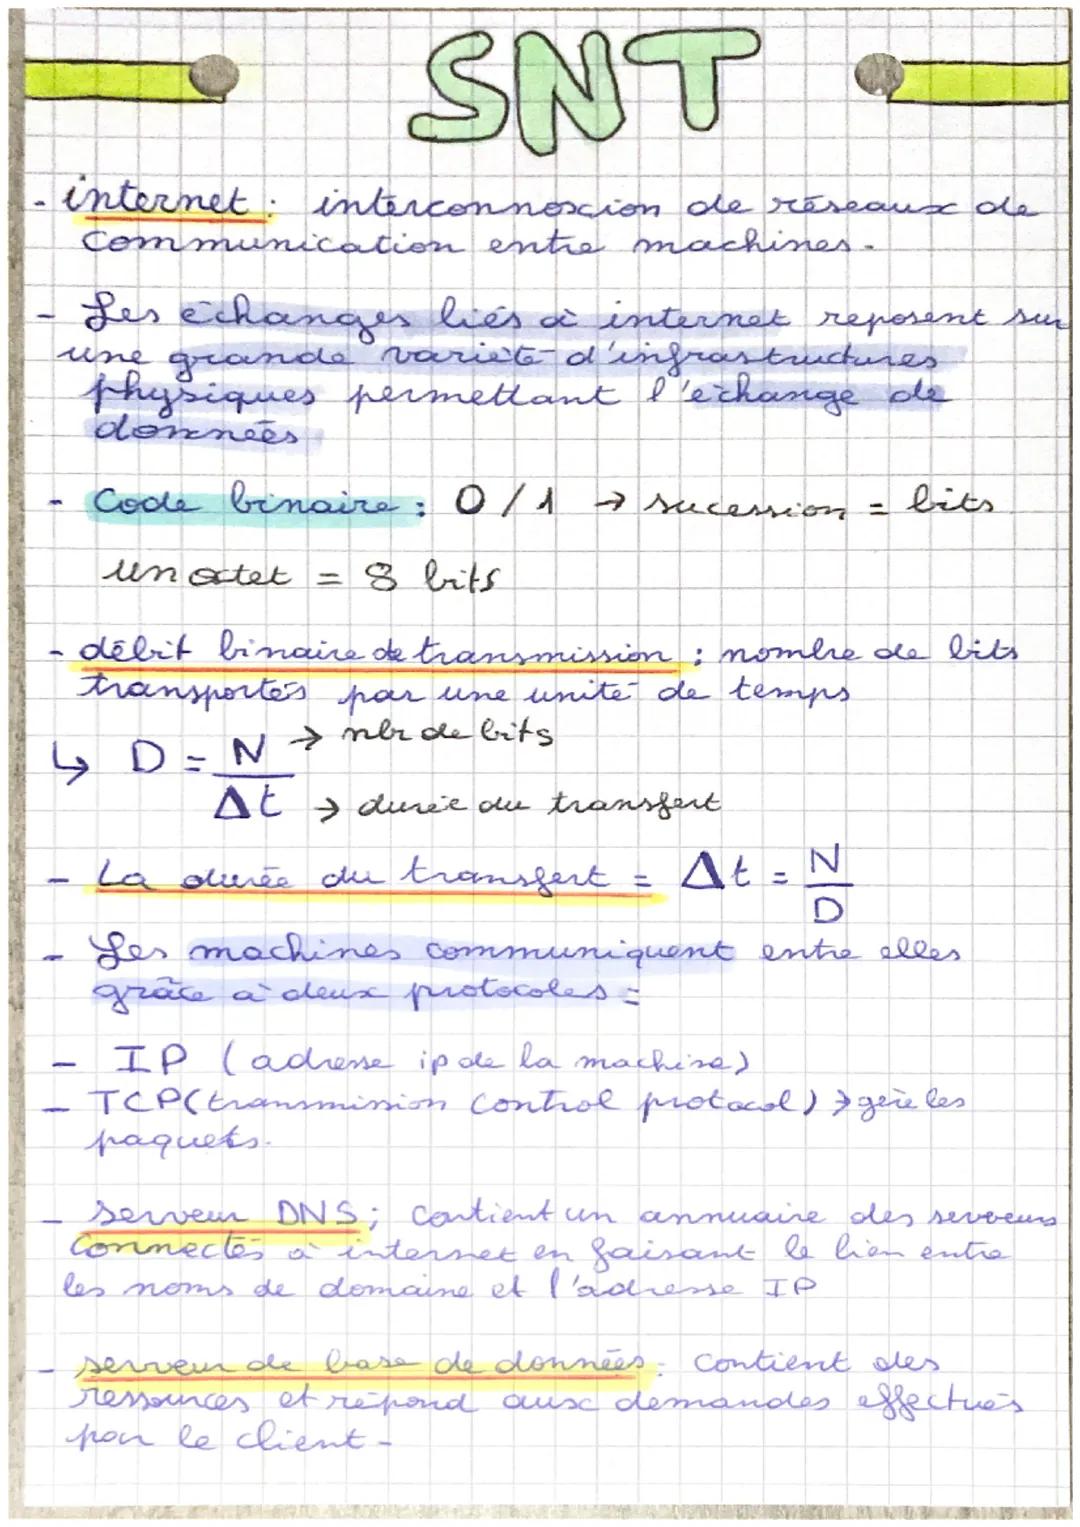 SNT
- internet : interconnoxion de réseaux de
communication entre machines.
- Les échanges liés à internet reposent sur
une grande variété d'infrastructures
physiques permettant l'échange de
données
- Code binaire : 0/1 → sucession = bits
un octet = 8 bits
- débit binaire de transmission : nombre de bits
transportés par une unité de temps
↳ D = N/Δt → nbr de bits
→ durée du transfert
- La durée du transfert = Δt = N/D
- Les machines communiquent entre elles
grâce à deux protocoles =
- IP (adresse ip de la machine)
- TCP (transmission control protocol) → gère les
paquets.
- serveur DNS ; contient un annuaire des serveurs
connectés à internet en faisant le lien entre
les noms de domaine et l'adresse IP
- serveur de base de données : contient des
ressources et répond aux demandes effectués
par le client -